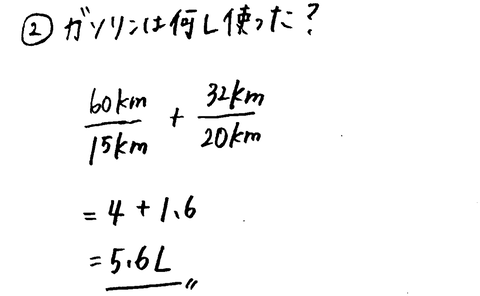 ② ガソリンは何L使った?
60km/15km + 32km/20km
= 4 + 1.6
= 5.6L〃